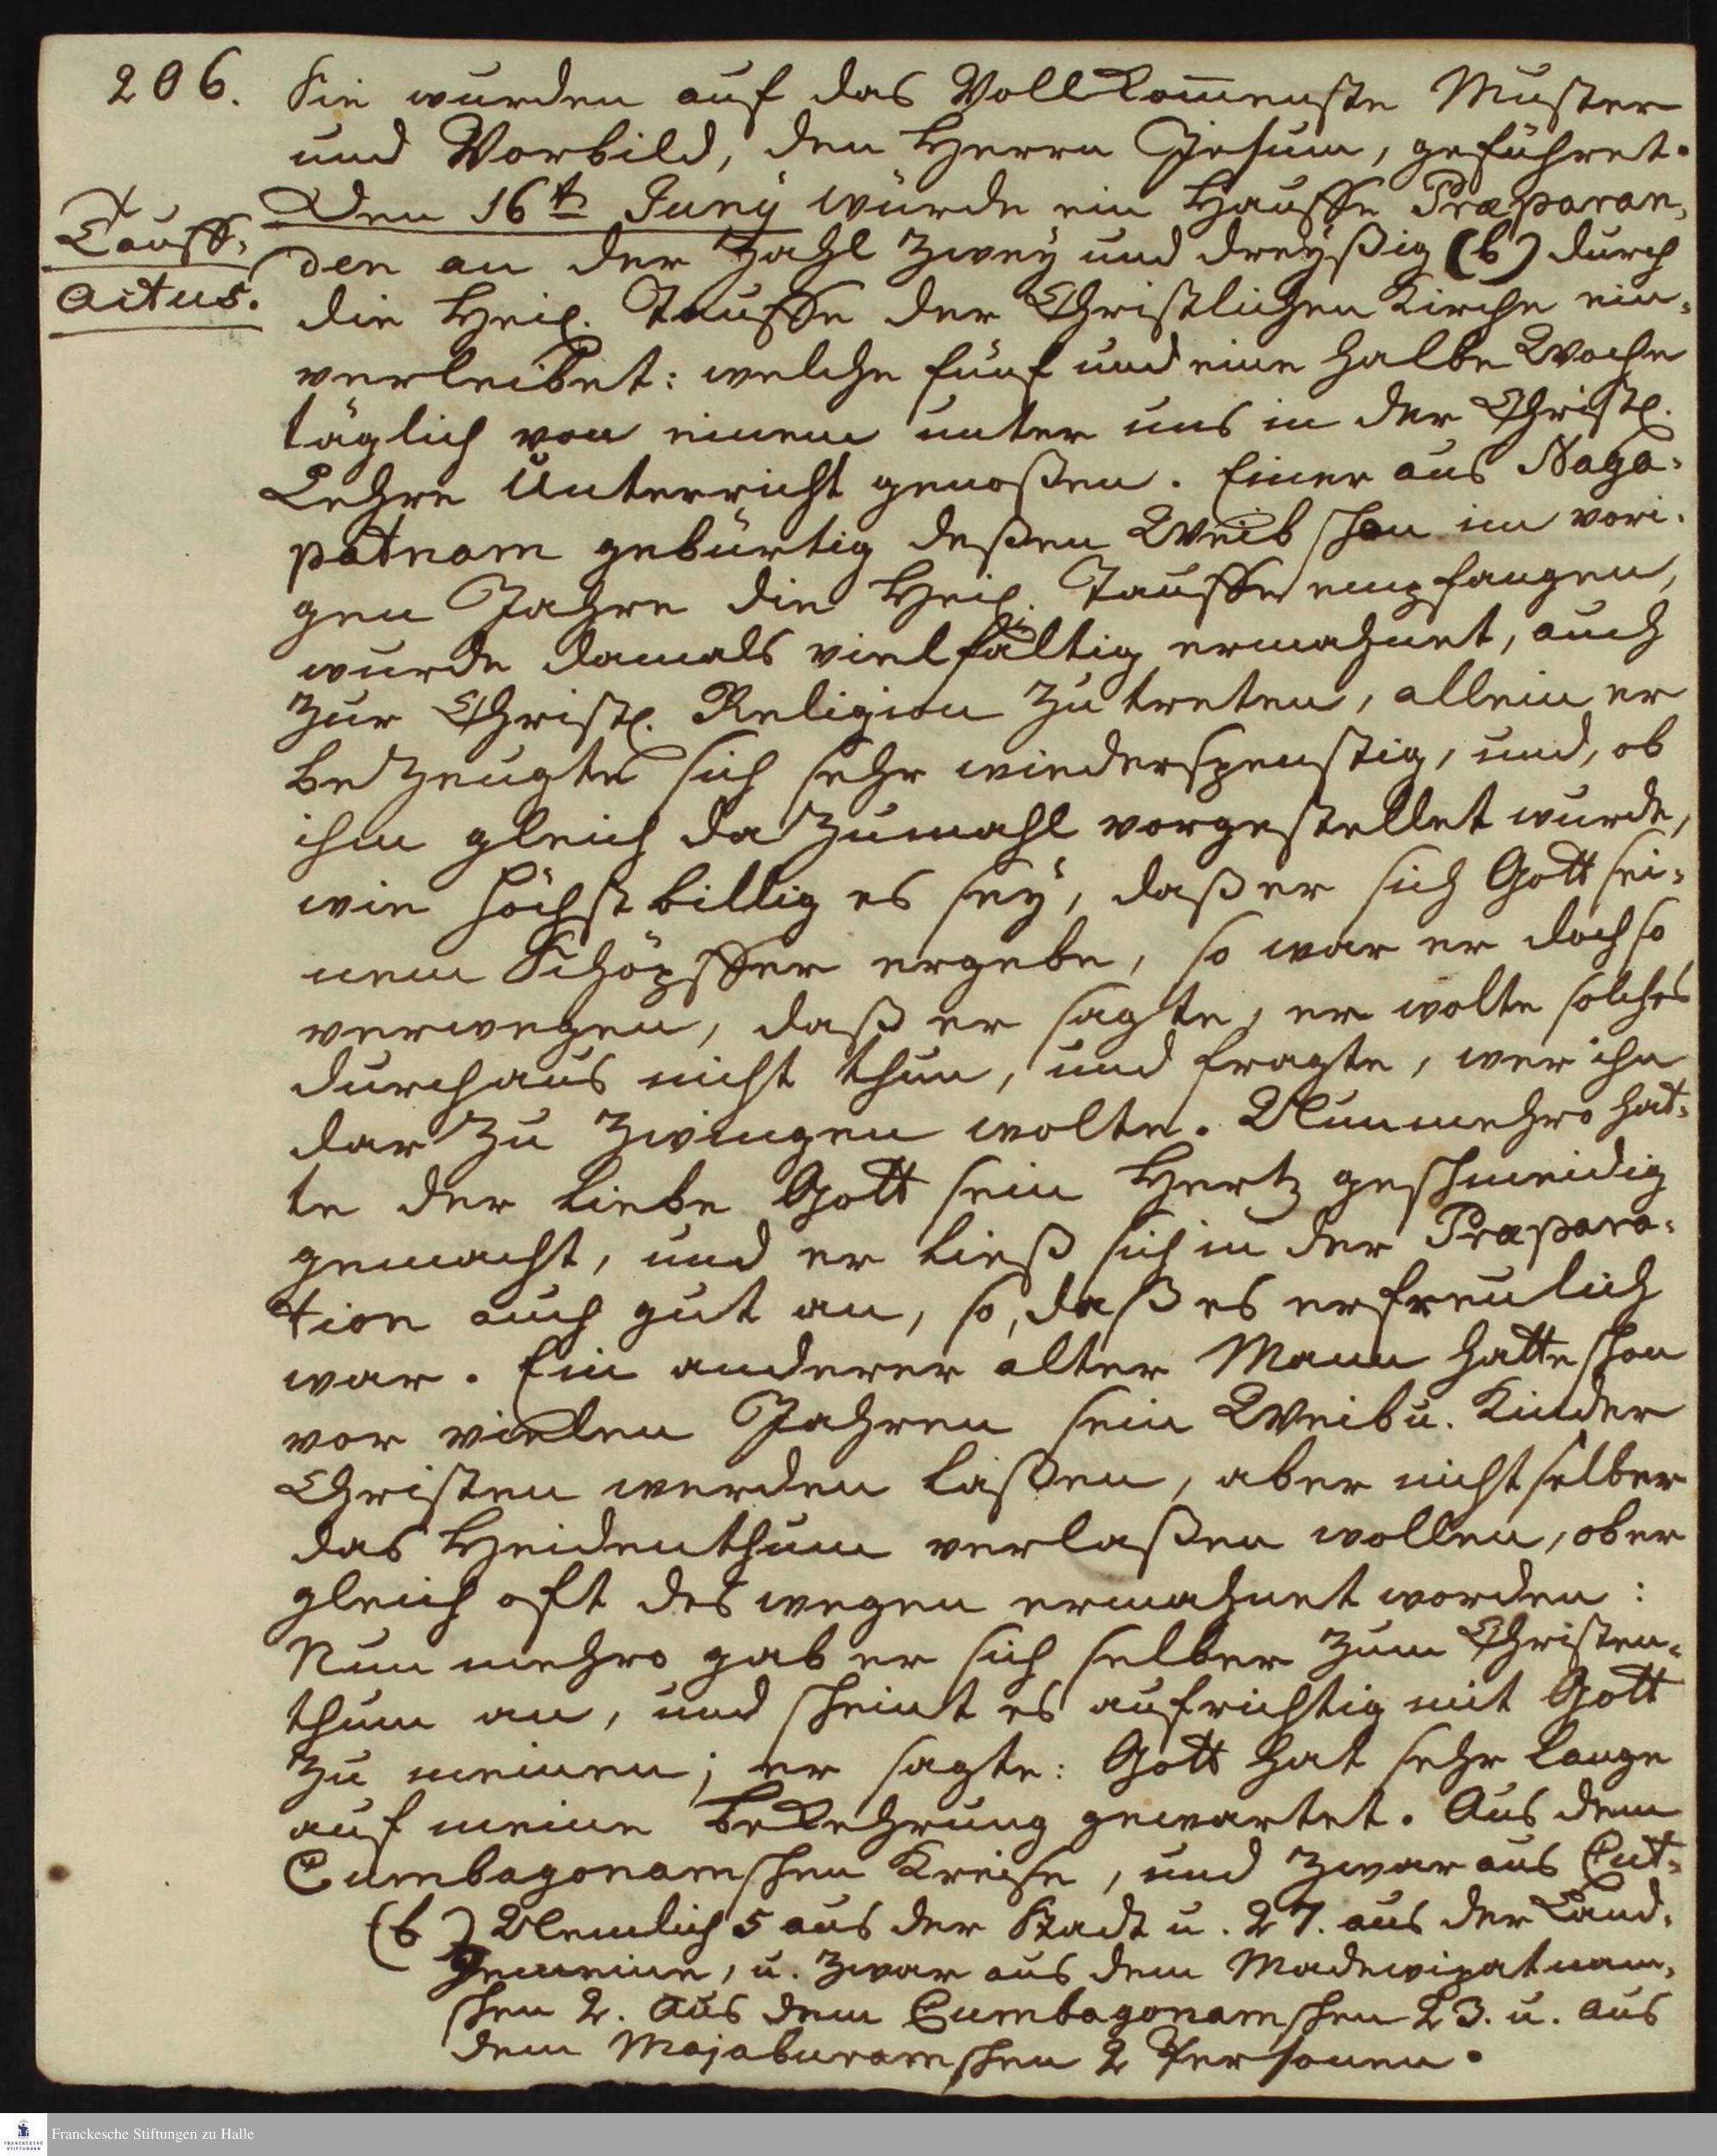 206.
Sie wurden auf das Vollkom̄enste Muster
und Vorbild, den Herrn Jesum, geführet.
Tauff-
Actus.
Den 16tn Junÿ wurde ein Hauffe Præparan-
den an der Zahl zweÿ und dreÿßig (b) durch
die Heil. Tauffe der Christlichen Kirche ein-
verleibet: welche fünf und eine halbe Woche
täglich von einem unter uns in der Christl.
Lehre Unterricht genoßen. Einer aus Naga-
patnam gebürtig deßen Weib schon im vori-
gen Jahre die Heil. Tauffe empfangen,
wurde damals vielfältig ermahnet, auch
zur Christl. Religion zu treten, allein er
bezeugte sich sehr wiederspenstig, und, ob
ihm gleich dazumahl vorgestellet wurde,
wie höchst billig es seÿ, daß er sich Gott sei-
nem Schöpffer ergebe, so war er doch so
verwegen, daß er sagte, er wolte solches
durchaus nicht thun, und fragte, wer ihn
darzu zwingen wolte. Nunmehro hat-
te der liebe Gott sein Hertz geschmeidig
gemacht, und er ließ sich in der Præpara-
tion auch gut an, so, daß es erfreulich
war. Ein anderer alter Mann hatte schon
vor vielen Jahren sein Weib u. Kinder
Christen werden laßen, aber nicht selber
das Heidenthum verlaßen wollen, ob er
gleich oft des wegen ermahnet worden:
Nun mehro gab er sich selber zum Christen-
thum an, und scheint es aufrichtig mit Gott
zu meinen; er sagte: Gott hat sehr lange
auf meine Bekehrung gewartet. Aus dem
Cumbagonamschen Kreise, und zwar aus Cut-
(b) Nemlich 5 aus der Stadt u. 27. aus der Land-
Gemeine, u. zwar aus dem Madewipatnam-
schen 2. aus dem Cumbagonamschen 23. u. aus
dem Majaburamschen 2 Personen.
Franckesche Stiftungen zu Halle
FRANCKESCHE
STIFTUNGEN